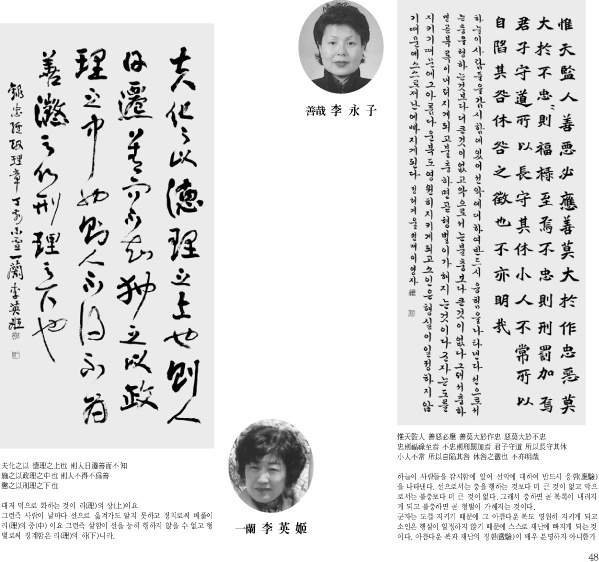 夫化之以德理之上也則人
日遷善而不知施之以政
理之中也則人不得不爲
善懲之以刑理之下也
錄忠經政理章 丁亥小雪 一蘭 李英姬
善哉 李永子
惟天監人善惡必應善莫大於作忠惡莫
大於不忠〃則福祿至焉不忠則刑罰加焉
君子守道所以長守其休小人不常所以
自陷其咎休咎之徵也不亦明哉
하늘이사람들을감시함에있어선악에대하여반드시응험을나타낸다선으로서
는충을행하는것보다더큰것이없고악으로서는불충보다큰것이없다그래서충하
면곧복록이내려지게되고불충하면곧형벌이가해지는것이다군자는도를
지키기때문에그아름다운복도영원히지키게되고소인은행실이일정하지않
기때문에스스로재난에빠지게된다
夫化之以 德理之上也 則人日遷善而不知
施之以政理之中也 則人不得不爲善
懲之以刑理之下也
대저 덕으로 화하는 것이 리(理)의 상(上)이요
그런즉 사람이 날마다 선으로 옮겨가도 알지 못하고 정치로써 베풂이
리(理)의 중(中) 이요 그런즉 살함이 선을 능히 행하지 않을 수 없고 형
벌로써 징계함은 리(理)의 하(下)니라.
一蘭 李英姬
惟天監人 善惡必應 善莫大於作忠 惡莫大於不忠
忠則福祿至焉 不忠則刑罰加焉 君子守道 所以長守其休
小人不常 所以自陷其咎 休咎之徵也 不亦明哉
하늘이 사람들을 감시함에 있어 선악에 대하여 반드시 응험(應驗)
을 나타낸다. 선으로서는 충을 행하는 것보다 더 큰 것이 없고 악으
로서는 불충보다 더 큰 것이 없다. 그래서 충하면 곧 복록이 내려지
게 되고 불충하면 곧 형벌이 가해지는 것이다.
군자는 도를 지키기 때문에 그 아름다운 복도 영원히 지키게 되고
소인은 행실이 일정하지 않기 때문에 스스로 재난에 빠지게 되는 것
이다. 아름다운 복과 재난의 징험(徵驗)이 매우 분명하지 아니한가
48